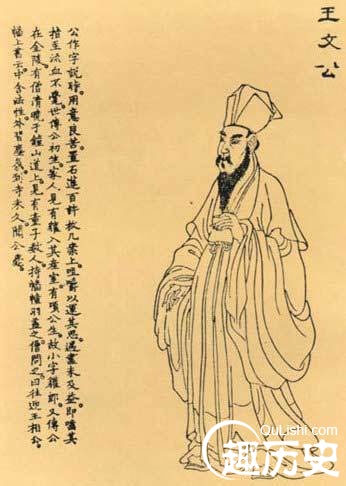 王文公
公作字說時用意良苦置石蓮百許枚几案上咀嚼以運其思遇盡未及益即嚙其
指至流血不覺世傳公初生家人見有獾入其產室有頃公生故小字獾郎又傳公
在金陵有僧清曉于鐘山道上見有童子數人持幡幢羽蓋之僧問之曰往迎王相公
幡上書云中含法性外習塵氛到寺未久聞公薨
QuLishi.com
趣历史